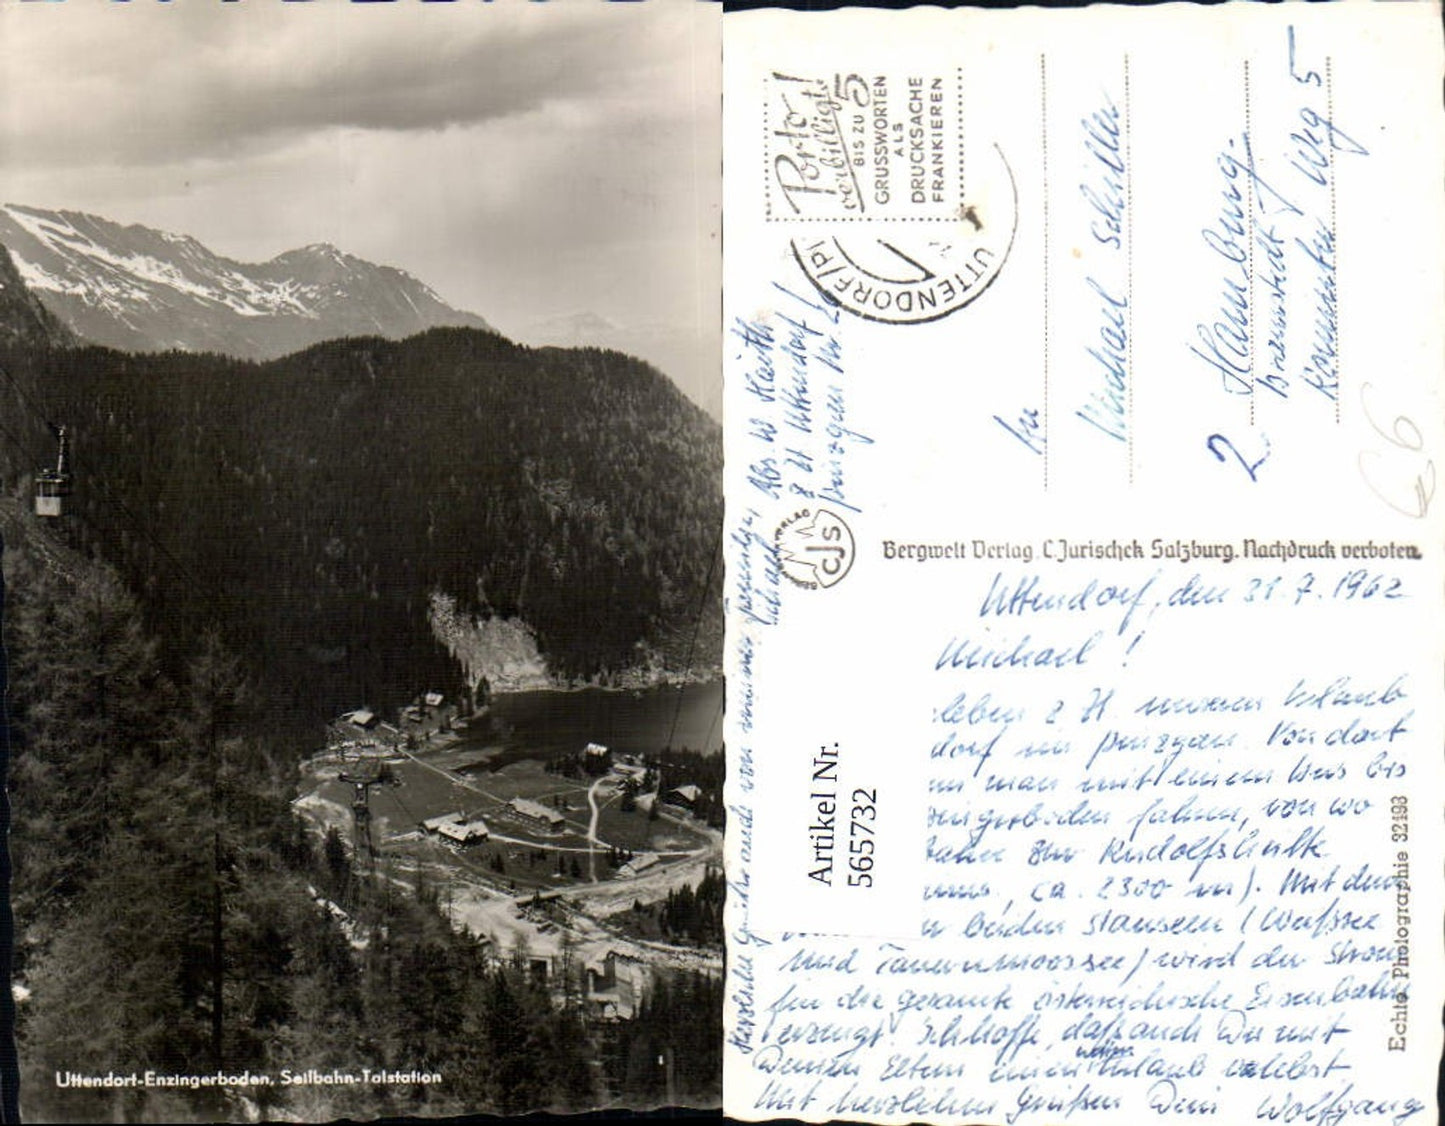 Uttendorf-Enzingerboden, Seilbahn-Talstation
Porto!
verbilligt!
BIS ZU 5
GRUSSWORTEN
ALS
DRUCKSACHE
FRANKIEREN
UTTENDORF/P
Michael Schiller
2 Hamburg
Weg 5
CJS
Bergwelt Verlag C. Jurischek Salzburg. Nachdruck verboten
Echte Photographie 32493
Artikel Nr.
565732
66
Uttendorf, den 31.7.1962
Michael!
leben z Zt unseren Urlaub
dorf im Pinzgau. Von dort
man mit einem Bus bis
zingerboden fahren, von wo
bahn zur Rudolfshütte
ca. 2300 m). Mit dem
beiden Stauseen (Weißsee
und Tauernmoossee) wird der Strom
für die gesamte österreichische Eisenbahn
erzeugt. Ich hoffe, daß auch Du mit
Deinen Eltern einen Urlaub verlebst
Mit herzlichen Grüßen Dein Wolfgang
Herzliche Grüße auch von meiner Familie,
Abs. W
z Zt Uttendorf
Pinzgau Nr. 2